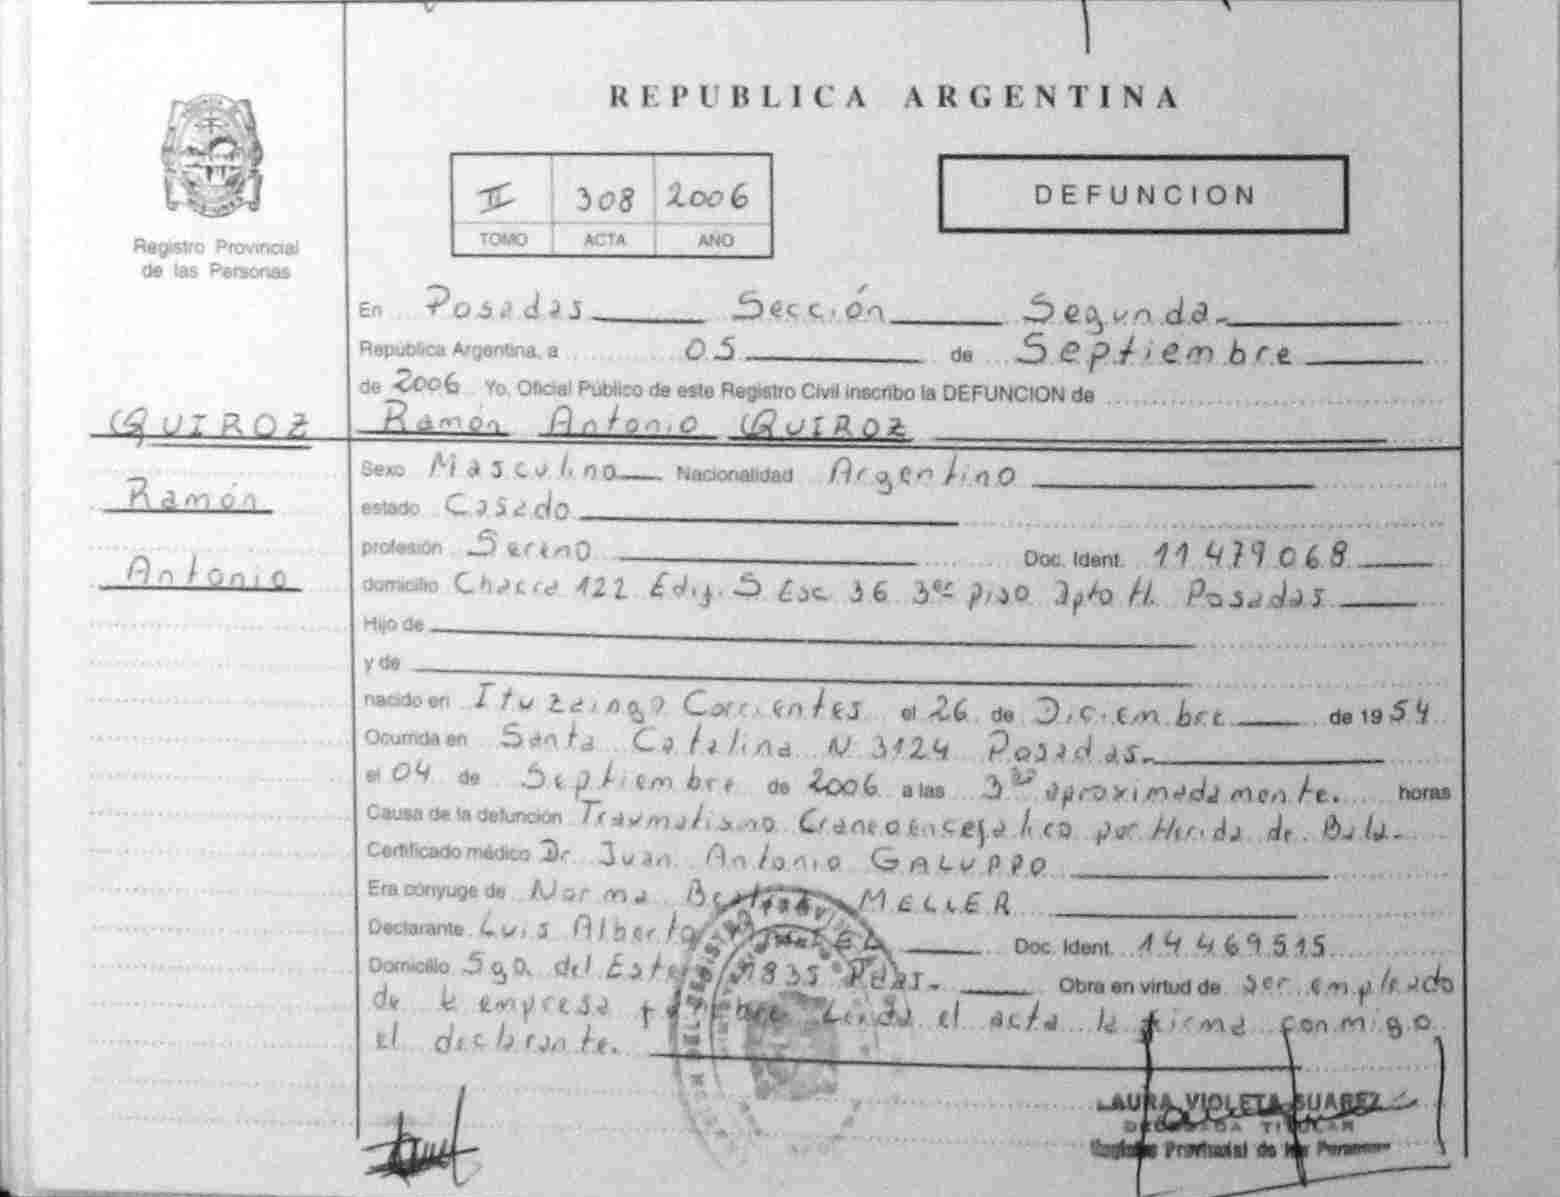 REPUBLICA ARGENTINA
Registro Provincial
de las Personas
II 308 2006
TOMO ACTA AÑO
DEFUNCION
En Posadas Sección Segunda
República Argentina, a 05 de Septiembre
de 2006 Yo, Oficial Público de este Registro Civil inscribo la DEFUNCION de
QUIROZ
Ramón Antonio QUIROZ
Sexo Masculino Nacionalidad Argentino
Ramón
estado Casado
profesión Sereno Doc. Ident. 11.479.068
Antonio
domicilio Chacra 122 Edif. S Esc 36 3er piso Dpto H. Posadas
Hijo de
y de
nacido en Ituzaingo Corrientes el 26 de Diciembre de 1954
Ocurrida en Santa Catalina N 3124 Posadas.
el 04 de Septiembre de 2006 a las 3 aproximadamente. horas
Causa de la defunción Traumatismo Craneoencefalico por Herida de Bala.
Certificado médico Dr. Juan Antonio GALUPPO
Era cónyuge de Norma MELLER
Declarante Luis Alberto Doc. Ident. 14469515
Domicilio Sgo. del Estero 1835 Pdas. Obra en virtud de ser empleado
de la empresa fúnebre. Leída el acta la firma conmigo
el declarante.
LAURA VIOLETA SUAREZ
DELEGADA TITULAR
Registro Provincial de las Personas